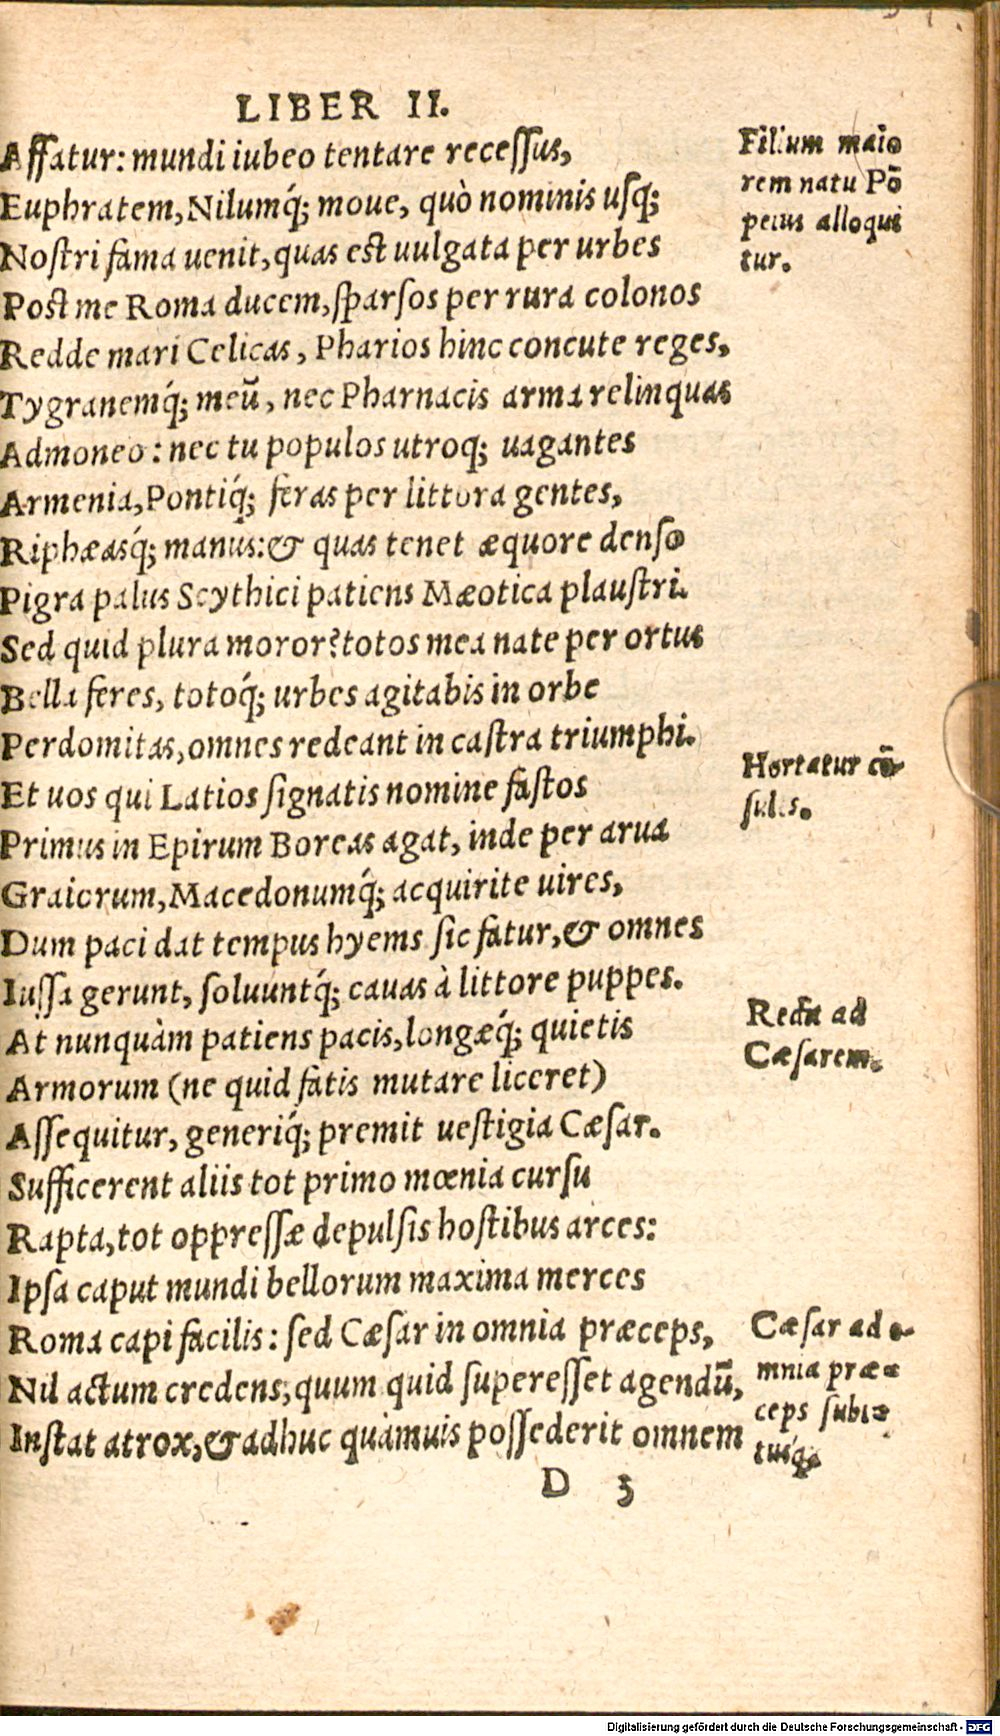 LIBER II.
Affatur: mundi iubeo tentare recessus,
Euphratem, Nilumq́; moue, quò nominis usq;
Nostri fama uenit, quas est uulgata per urbes
Post me Roma ducem, sparsos per rura colonos
Redde mari Celicas, Pharios hinc concute reges,
Tygranemq́; meū, nec Pharnacis arma relinquas
Admoneo: nec tu populos utroq; uagantes
Armenia, Pontiq́; feras per littora gentes,
Riphæasq́; manus: & quas tenet æquore denso
Pigra palus Scythici patiens Mæotica plaustri.
Sed quid plura moror? totos mea nate per ortus
Bella feres, totoq́; urbes agitabis in orbe
Perdomitas, omnes redeant in castra triumphi.
Et uos qui Latios signatis nomine fastos
Primus in Epirum Boreas agat, inde per arua
Graiorum, Macedonumq́; acquirite uires,
Dum paci dat tempus hyems sic fatur, & omnes
Iussa gerunt, soluuntq́; cauas à littore puppes.
At nunquàm patiens pacis, longæq́; quietis
Armorum (ne quid fatis mutare liceret)
Assequitur, generiq́; premit uestigia Cæsar.
Sufficerent aliis tot primo mœnia cursu
Rapta, tot oppressæ depulsis hostibus arces:
Ipsa caput mundi bellorum maxima merces
Roma capi facilis: sed Cæsar in omnia præceps,
Nil actum credens, quum quid superesset agendū,
Instat atrox, & adhuc quàmuis possederit omnem
D 3
Filium maio
rem natu Pō
peius alloqui
tur.
Hortatur cō-
sules.
Redit ad
Cæsarem.
Cæsar ad o-
mnia præ-
ceps subi-
tusq́;
Digitalisierung gefördert durch die Deutsche Forschungsgemeinschaft - DFG